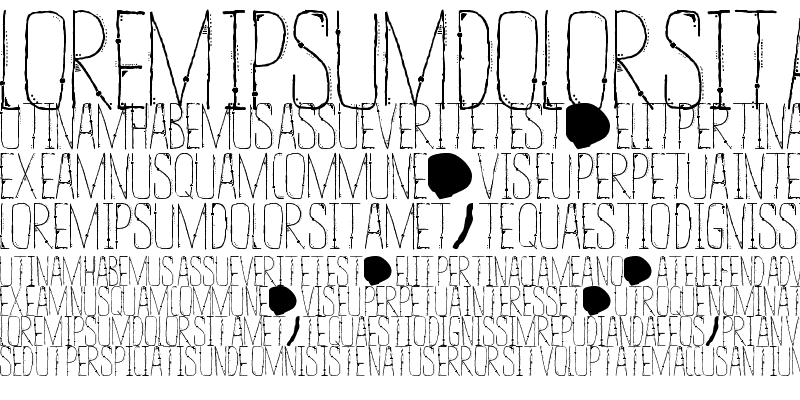 LOREM IPSUM DOLOR SIT A
UTINAM HABEMUS ASSUEVERIT ET EST. ELIT PERTINA
EX EAM NUSQUAM COMMUNE. VIS EU PERPETUA INTE
LOREM IPSUM DOLOR SIT AMET, TE QUAESTIO DIGNISS
UTINAM HABEMUS ASSUEVERIT ET EST. ELIT PERTINACIA MEA NO. AT ELEIFEND ADV
EX EAM NUSQUAM COMMUNE. VIS EU PERPETUA INTERESSET. UTROQUE NOMINAT
LOREM IPSUM DOLOR SIT AMET, TE QUAESTIO DIGNISSIM REPUDIANDAE EOS, PRI AN V
SED UT PERSPICIATIS UNDE OMNIS ISTE NATUS ERROR SIT VOLUPTATEM ACCUSANTIUM